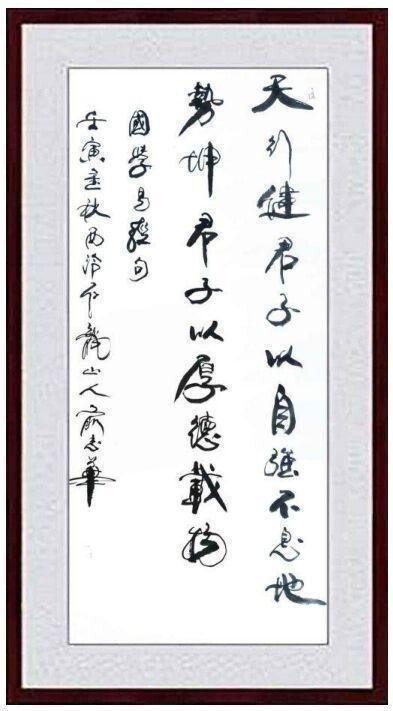 天行健君子以自強不息地
勢坤君子以厚德載物
國學易經句
壬寅秋西泠龍山人俞志華